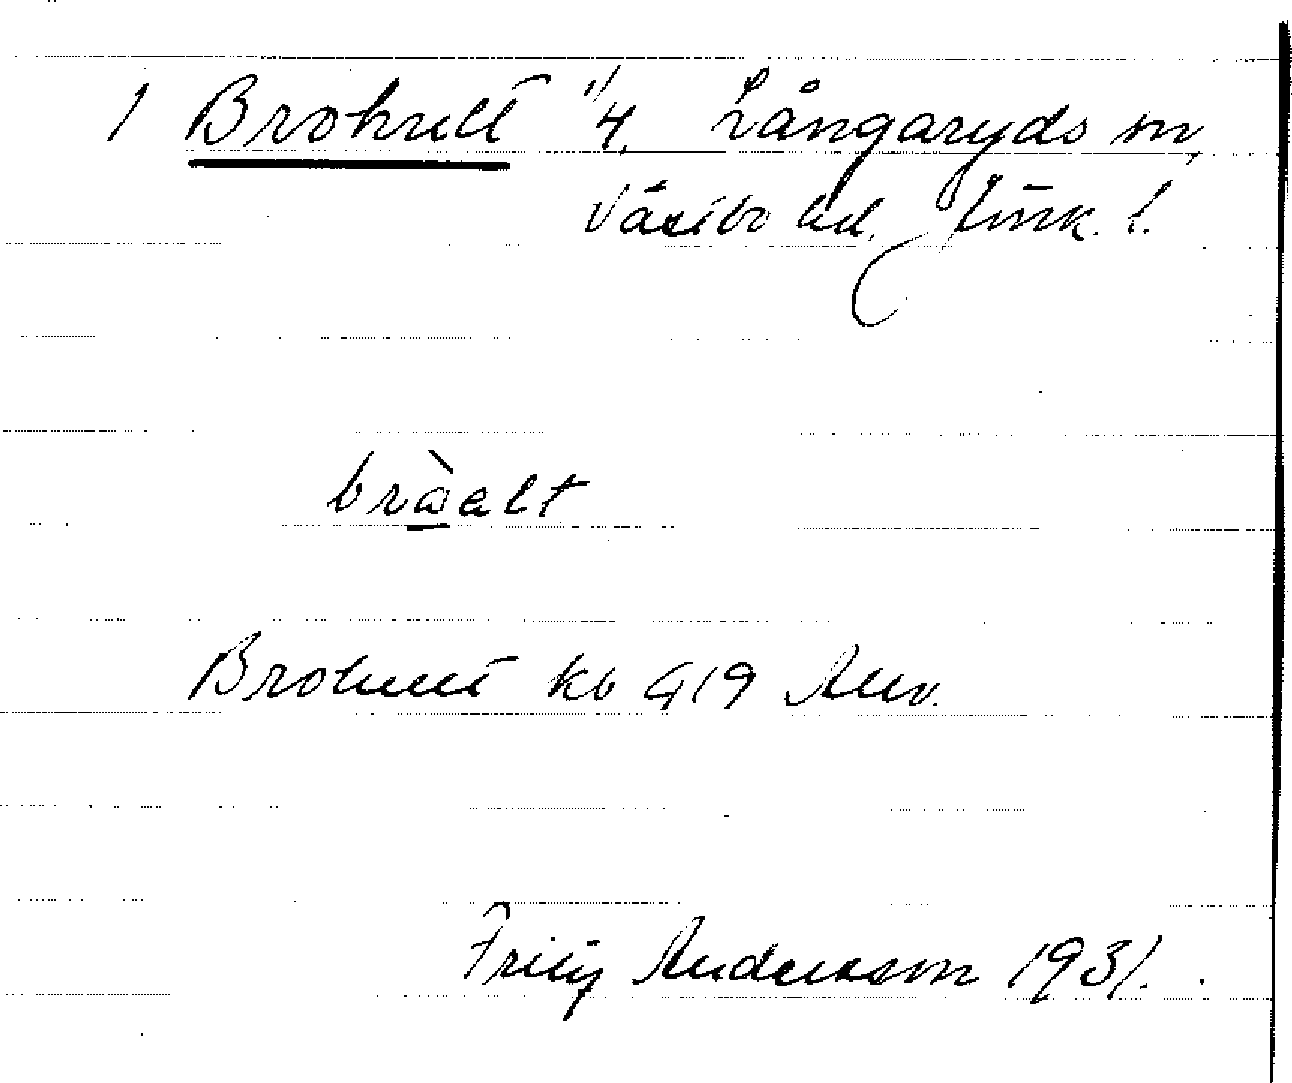 1 Brohult 1/4, Långaryds sn,
Västbo hd, Jönk. l.
bràalt
Brohult kb 419 Anv.
Fritz Andersson 1931.